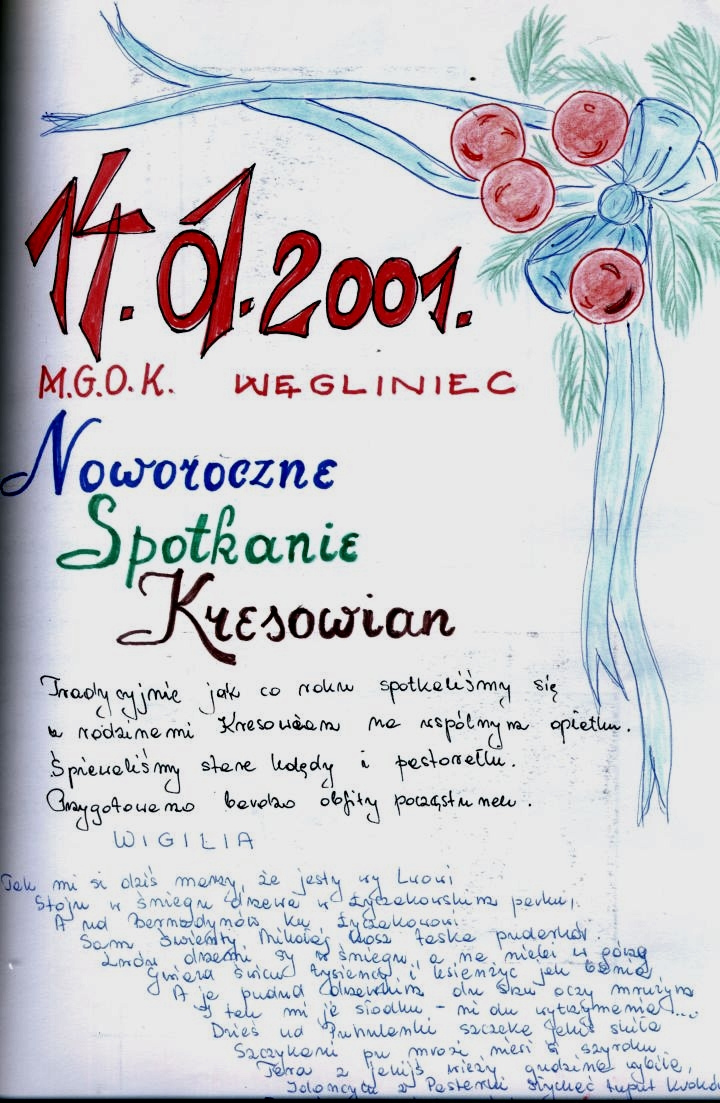 14.01.2001.
M.G.O.K. WĘGLINIEC
Noworoczne
Spotkanie
Kresowian
Tradycyjnie jak co roku spotkaliśmy się
z rodzinami Kresowian na wspólnym opłatku.
Śpiewaliśmy stare kolędy i pastorałki.
Przygotowano bardzo obfity poczęstunek.
WIGILIA
Tak mi si dziś marzy, że jesty wy Lwowi
Stoju w śniegu drzewa w Łyczakowskim parku,
A ud Bernadynów ku Łyczakowowi
Sam Świenty Mikołaj taska puderków.
Lwów drzemi sy w śniegu, a na niebi w górze
Gwiazd świcu tysiency, i ksienżyc jak bania
A ja pudud drzewkim du snu oczy mrużym
I tak mi je słodku - ni du wytrzymania...
Dzieś ud Puhulanki szczeka jakiś
pu mrozi niesi si szyroku
Tera z jakiejś wieży gudzina wybiła,
Idoncych z Pasterki słychać tuput kroków